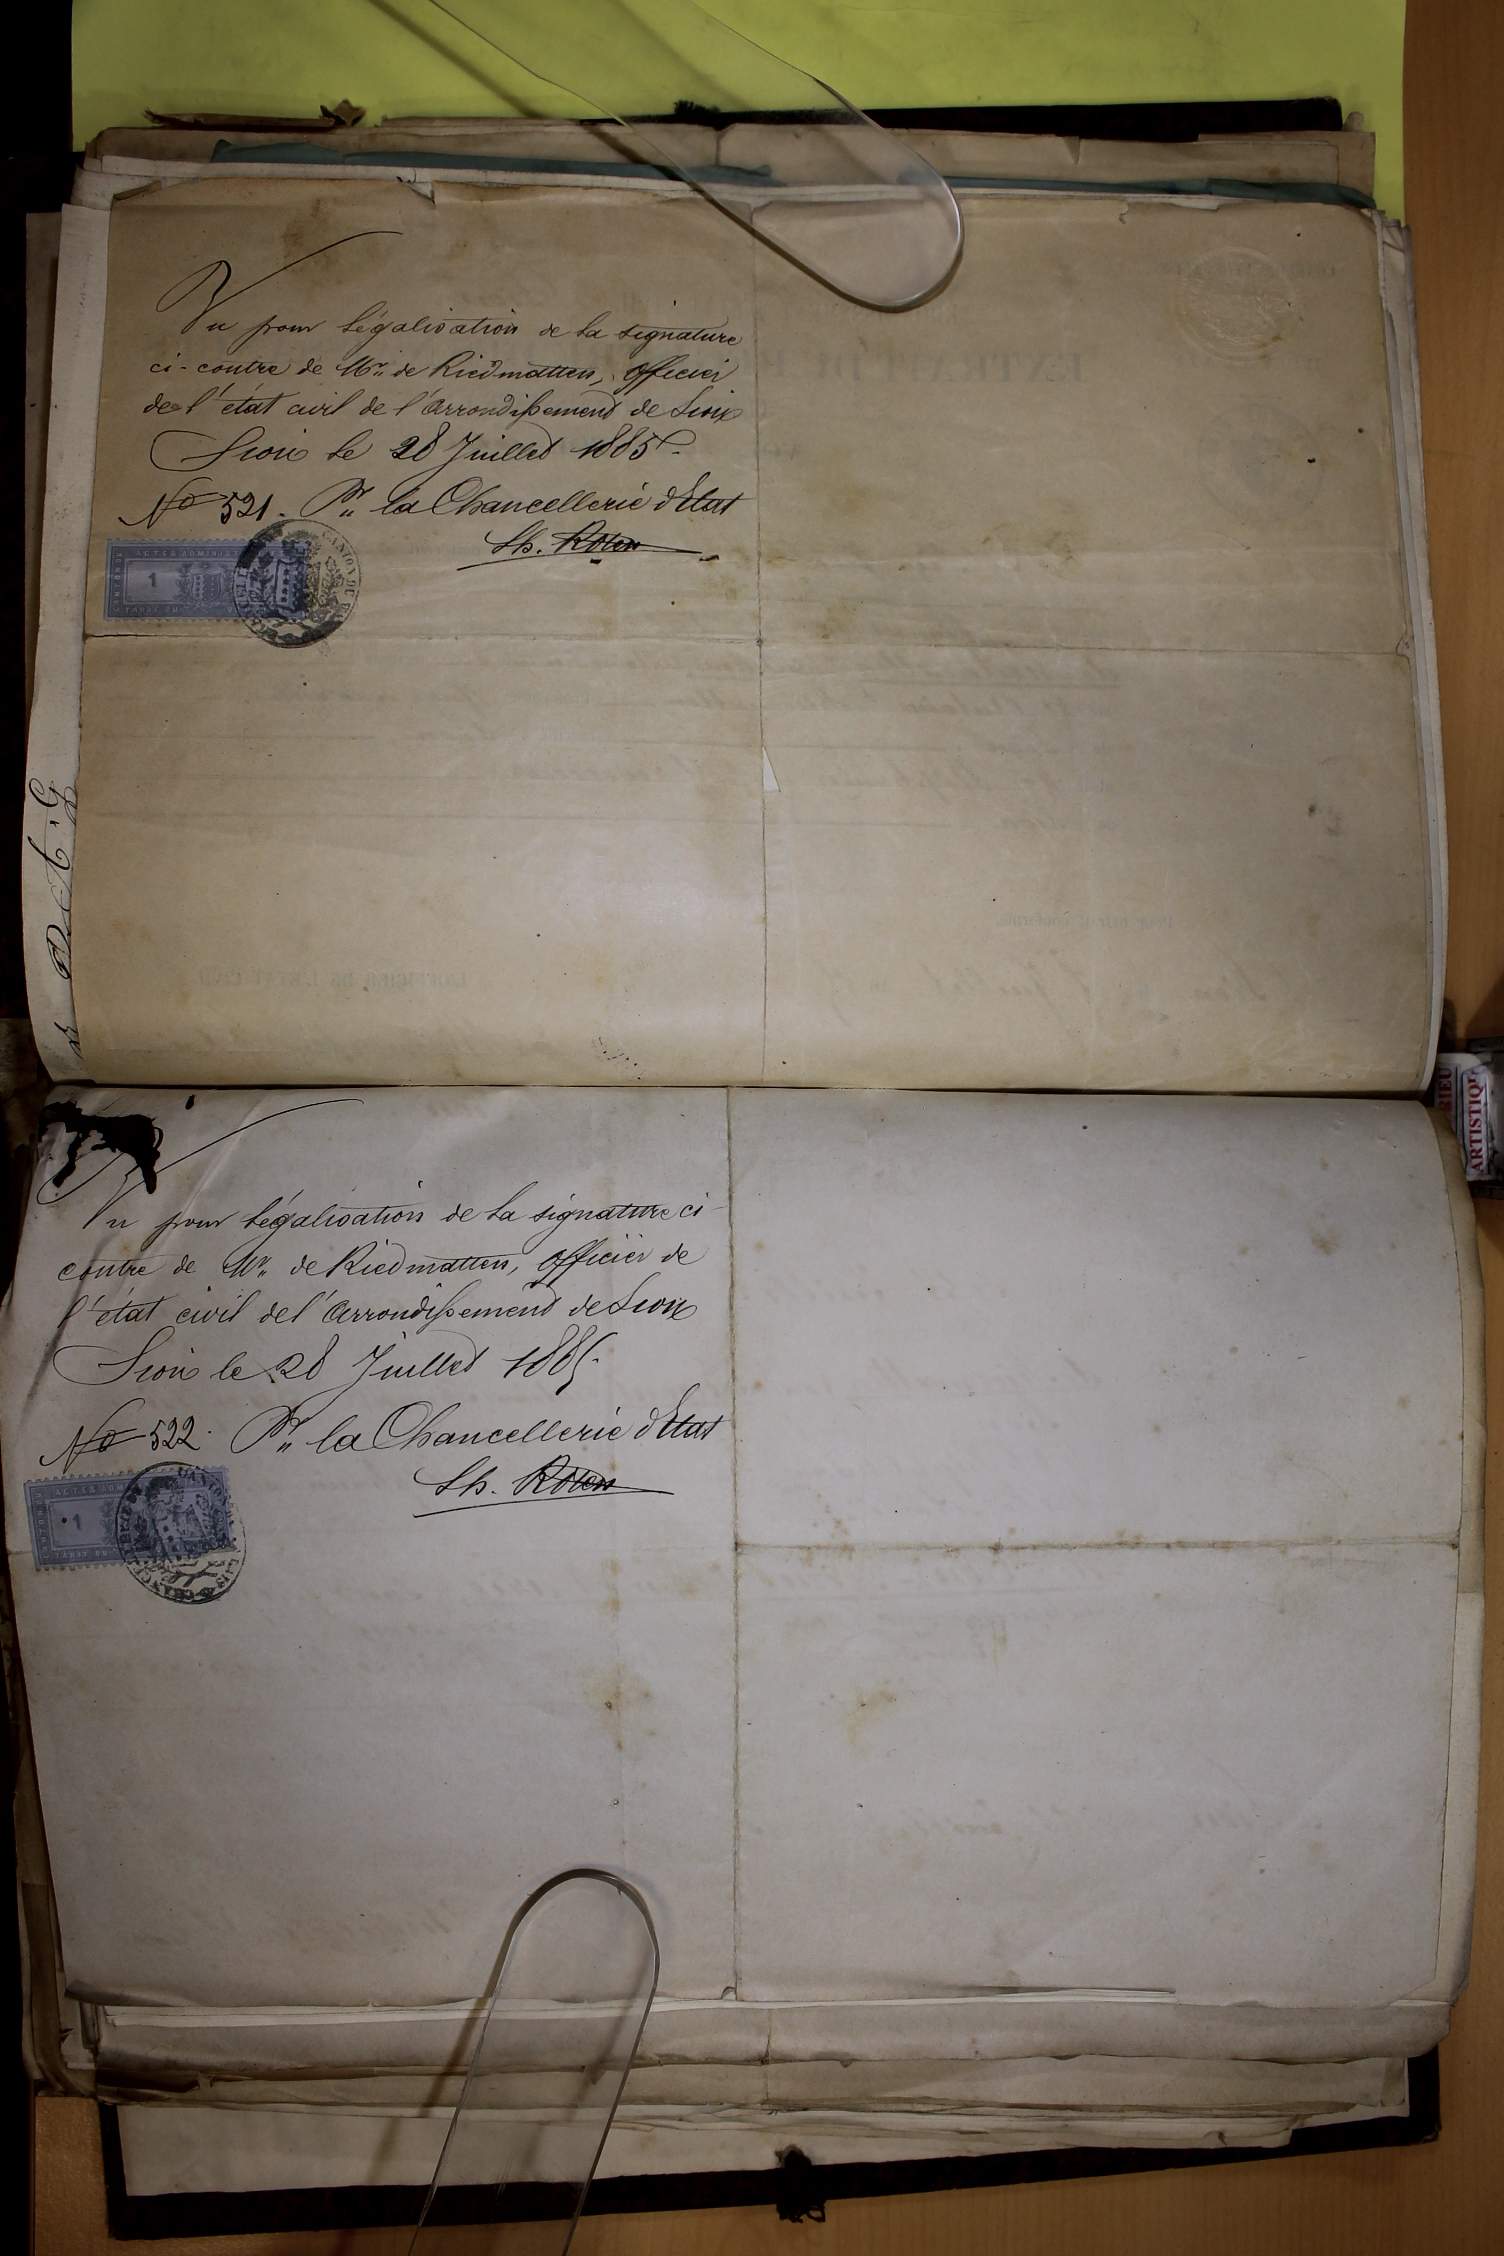 Vu pour légalisation de la signature
ci-contre de Mr. de Riedmatten, officier
de l'état civil de l'Arrondissement de Sion
Sion le 28 Juillet 1885.
No 521. Pr. la Chancellerie d'Etat
1
Vu pour légalisation de la signature ci-
contre de Mr. de Riedmatten, officier de
l'état civil de l'Arrondissement de Sion
Sion le 28 Juillet 1885.
No 522. Pr. la Chancellerie d'Etat
1
ARTISTIQU